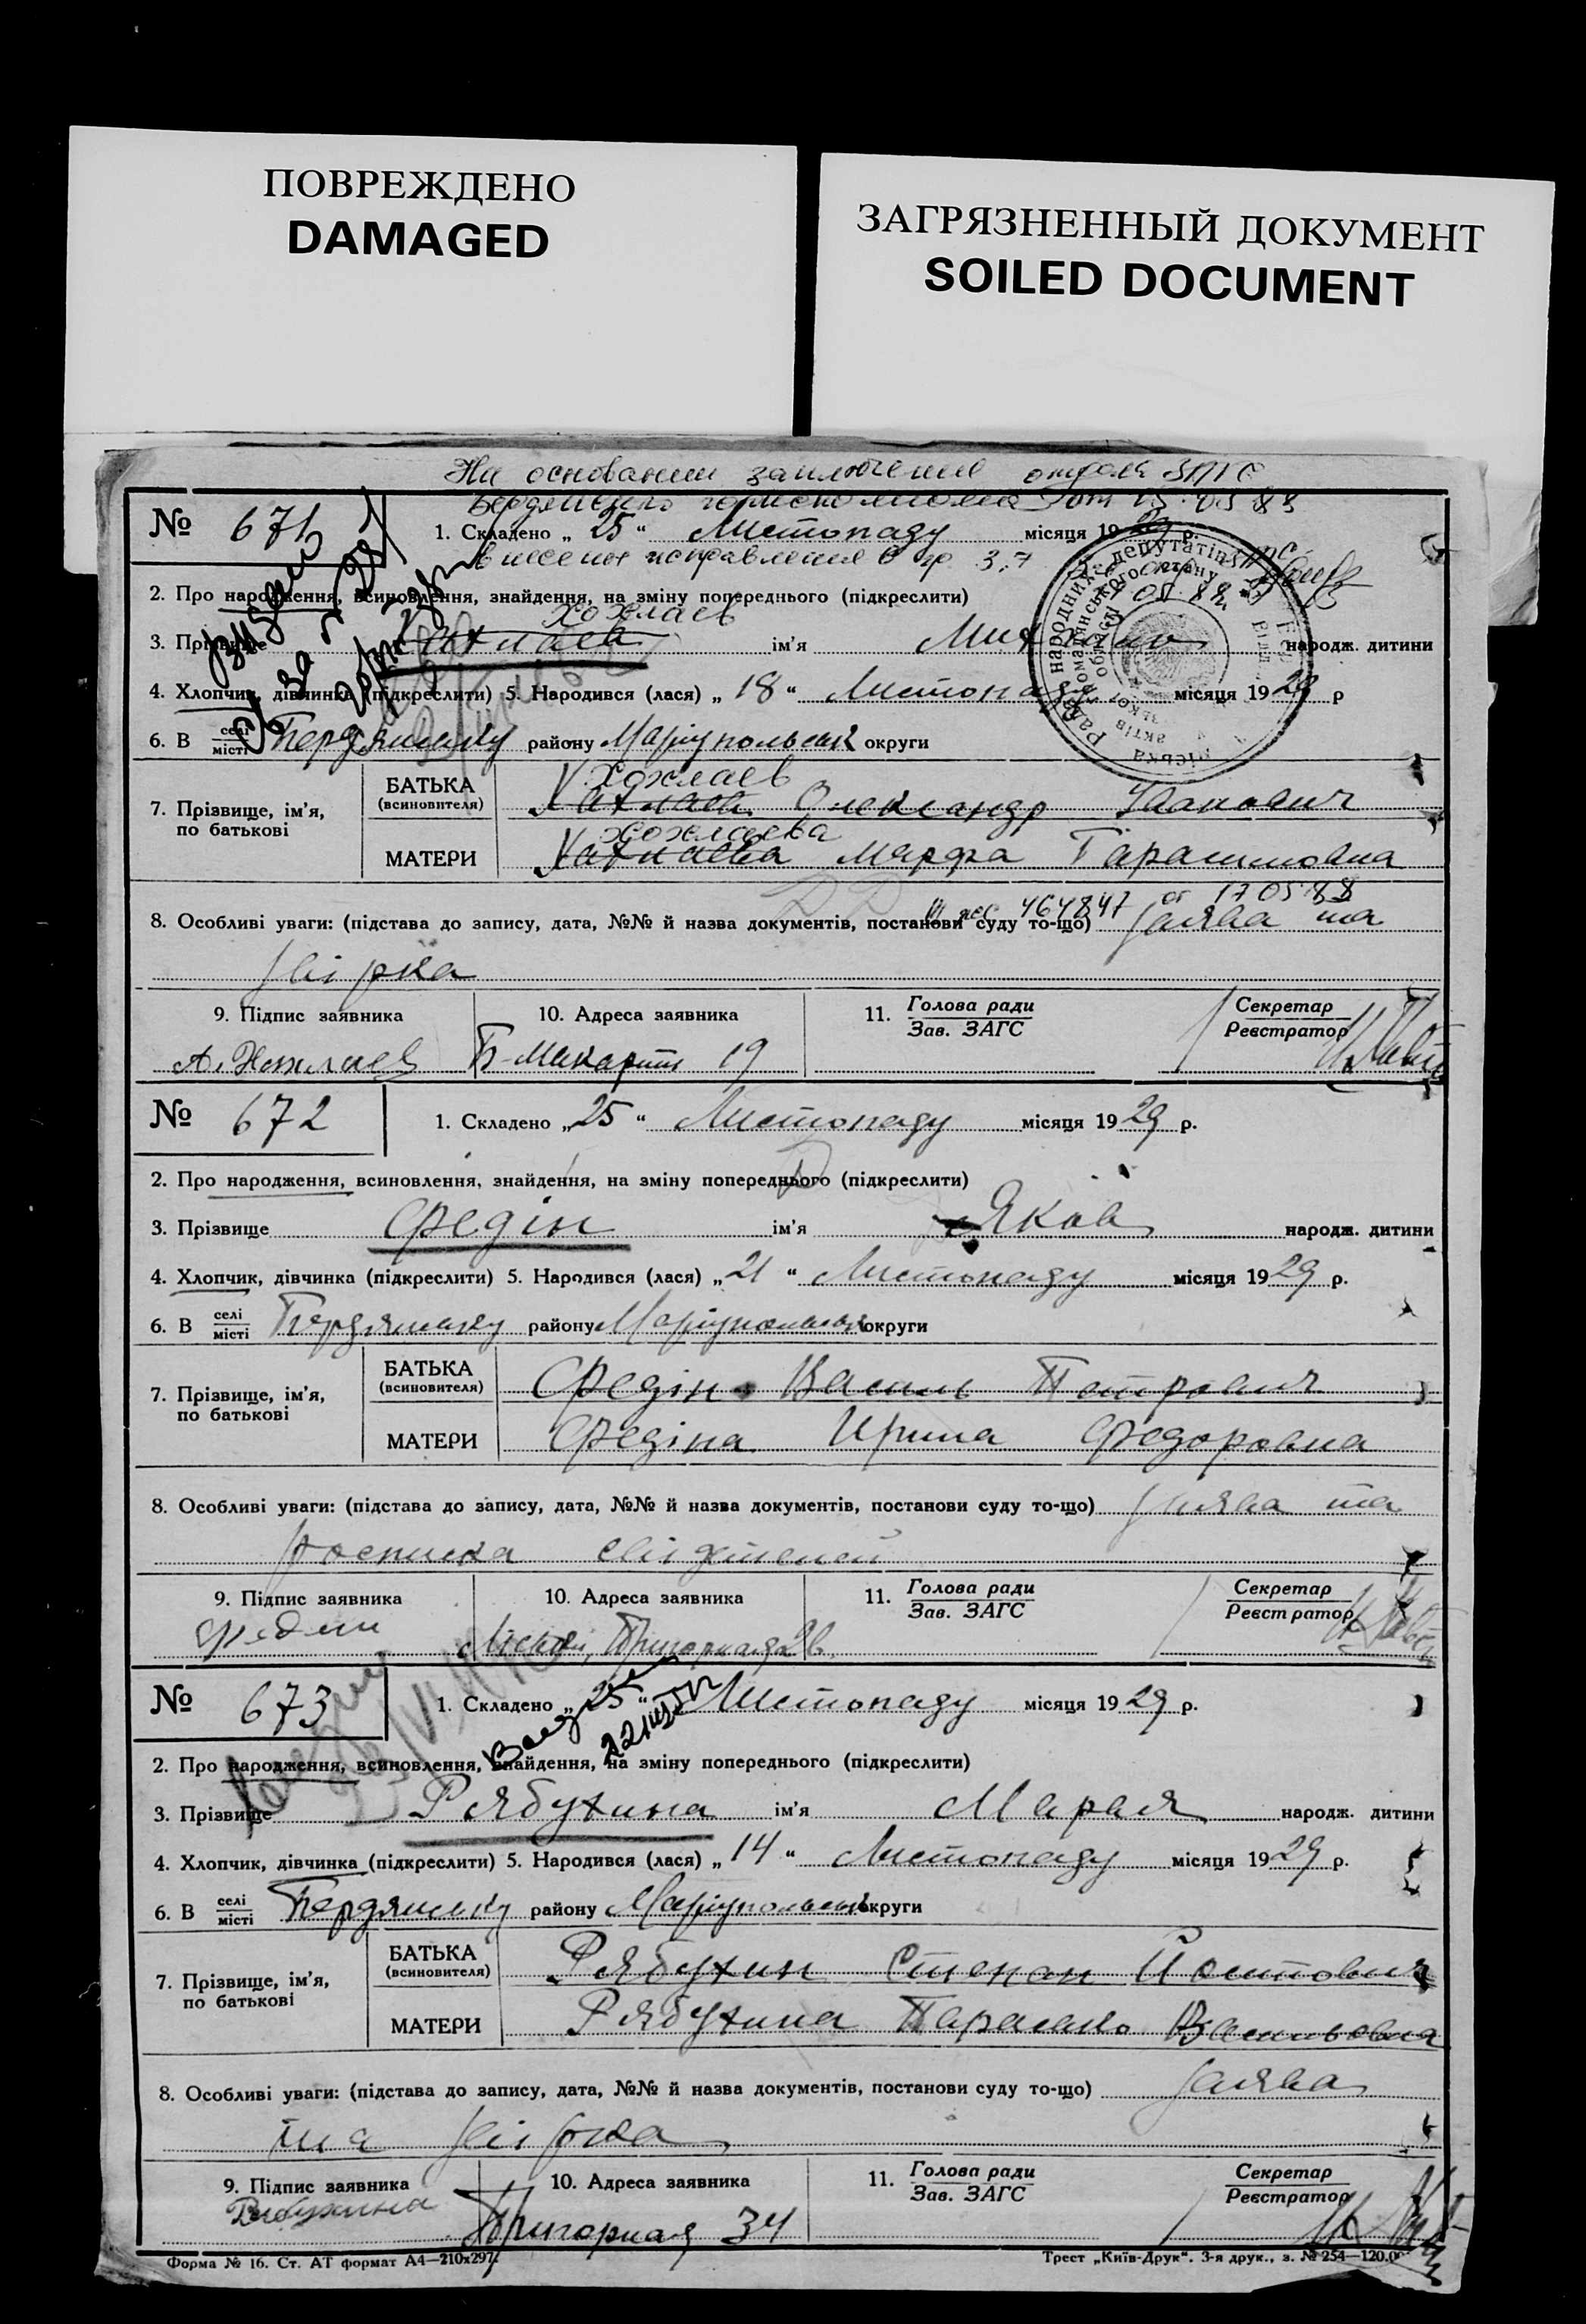 ПОВРЕЖДЕНО
DAMAGED
ЗАГРЯЗНЕННЫЙ ДОКУМЕНТ
SOILED DOCUMENT
На основании заключения отдела ЗАГС
Бердянского горисполкома от 05 88
внесены исправления в гр. 3,7
№ 671
1. Складено „25“ Листопаду місяця 1929 р.
2. Про народження, всиновлення, знайдення, на зміну попереднього (підкреслити)
Хохлаев
3. Прізвище Хахлаев ім'я Михайло народж. дитини
4. Хлопчик, дівчинка (підкреслити) 5. Народився (лася) „18“ Листопаду місяця 1929 р
6. В селі місті Бердянську району Маріупольськ округи
Хохлаев
7. Прізвище, ім'я, по батькові БАТЬКА (всиновителя) Хахлаев Олександр Іванович
Хохлаева
МАТЕРИ Хахлаева Марфа Гарасимовна
464847 от 17 05 88
8. Особливі уваги: (підстава до запису, дата, №№ й назва документів, постанови суду то-що) Заява та
звірка
9. Підпис заявника 10. Адреса заявника 11. Голова ради Зав. ЗАГС Секретар Реєстратор
А. Хохлаев Б-Макорт 19
№ 672
1. Складено „25“ Листопаду місяця 1929 р.
2. Про народження, всиновлення, знайдення, на зміну попереднього (підкреслити)
3. Прізвище Федін ім'я Яков народж. дитини
4. Хлопчик, дівчинка (підкреслити) 5. Народився (лася) „21“ Листопаду місяця 1929 р.
6. В селі місті Бердянську району Маріупольськ округи
7. Прізвище, ім'я, по батькові БАТЬКА (всиновителя) Федін Василь Петрович
МАТЕРИ Федіна Ирина Федоровна
8. Особливі уваги: (підстава до запису, дата, №№ й назва документів, постанови суду то-що) Заява та
росписка свідетелей
9. Підпис заявника 10. Адреса заявника 11. Голова ради Зав. ЗАГС Секретар Реєстратор
Федин
№ 673
1. Складено „25“ Листопаду місяця 1929 р.
2. Про народження, всиновлення, знайдення, на зміну попереднього (підкреслити)
3. Прізвище Рябухина ім'я Мария народж. дитини
4. Хлопчик, дівчинка (підкреслити) 5. Народився (лася) „14“ Листопаду місяця 1929 р.
6. В селі місті Бердянську району Маріупольськ округи
7. Прізвище, ім'я, по батькові БАТЬКА (всиновителя) Рябухин Степан Йосипович
МАТЕРИ Рябухина Парасков Васильовна
8. Особливі уваги: (підстава до запису, дата, №№ й назва документів, постанови суду то-що) Заява
та звірка
9. Підпис заявника 10. Адреса заявника 11. Голова ради Зав. ЗАГС Секретар Реєстратор
Рябухина Пригорная 34
Форма № 16. Ст. АТ формат А4—210х297.
Трест „Київ-Друк“. 3-я друк., з. № 254—120.0